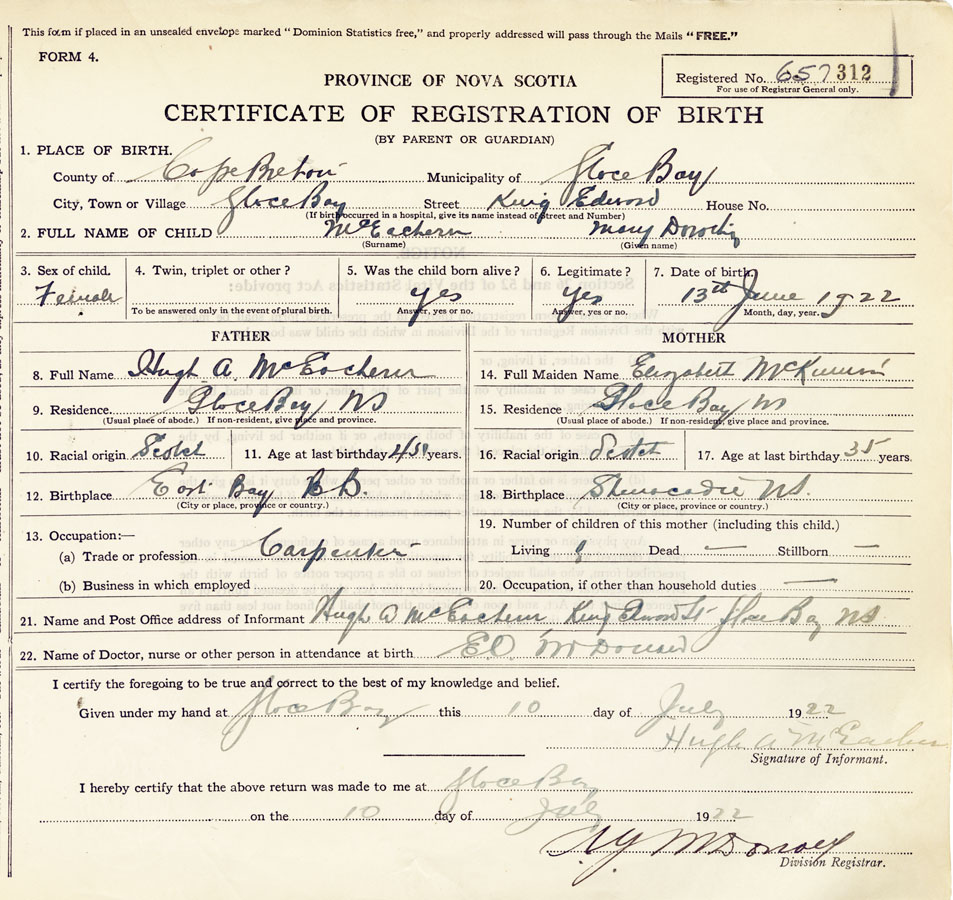 This form if placed in an unsealed envelope marked "Dominion Statistics free," and properly addressed will pass through the Mails "FREE."
FORM 4.
PROVINCE OF NOVA SCOTIA
Registered No. 657 312
For use of Registrar General only.
CERTIFICATE OF REGISTRATION OF BIRTH
(BY PARENT OR GUARDIAN)
1. PLACE OF BIRTH.
County of Cape Breton Municipality of Glace Bay
City, Town or Village Glace Bay Street King Edward House No.
(If birth occurred in a hospital, give its name instead of Street and Number)
2. FULL NAME OF CHILD McEachern Mary Dorothy
(Surname) (Given name)
3. Sex of child. 4. Twin, triplet or other? 5. Was the child born alive? 6. Legitimate? 7. Date of birth.
Female yes yes 13th June 1922
To be answered only in the event of plural birth. Answer, yes or no. Answer, yes or no. Month, day, year.
FATHER MOTHER
8. Full Name Hugh A. McEachern 14. Full Maiden Name Elizabeth McKinnon
9. Residence Glace Bay NS 15. Residence Glace Bay NS
(Usual place of abode.) If non-resident, give place and province. (Usual place of abode.) If non-resident, give place and province.
10. Racial origin Scotch 11. Age at last birthday 45 years. 16. Racial origin Scotch 17. Age at last birthday 35 years.
12. Birthplace East Bay C.B. 18. Birthplace Shenacadie NS.
(City or place, province or country.) (City or place, province or country.)
19. Number of children of this mother (including this child.)
13. Occupation:—
(a) Trade or profession Carpenter Living Dead — Stillborn —
(b) Business in which employed 20. Occupation, if other than household duties —
21. Name and Post Office address of Informant Hugh A McEachern King Edward St Glace Bay NS
22. Name of Doctor, nurse or other person in attendance at birth McDonald
I certify the foregoing to be true and correct to the best of my knowledge and belief.
Given under my hand at Glace Bay this 10 day of July 1922
Hugh A McEachern
Signature of Informant.
I hereby certify that the above return was made to me at Glace Bay
on the 10 day of July 1922
McDonald
Division Registrar.